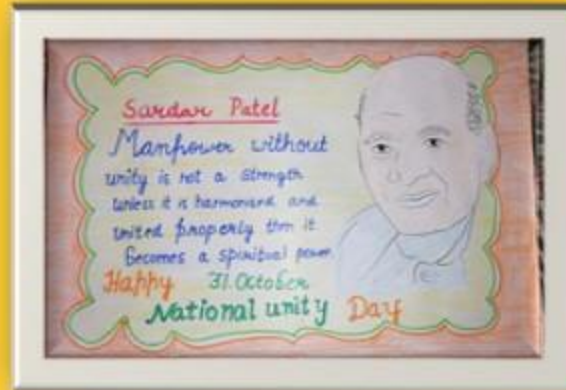 Sardar Patel
Manpower without
unity is not a strength
unless it is harmonised and
united properly then it
becomes a spiritual power
Happy 31 October
National unity Day